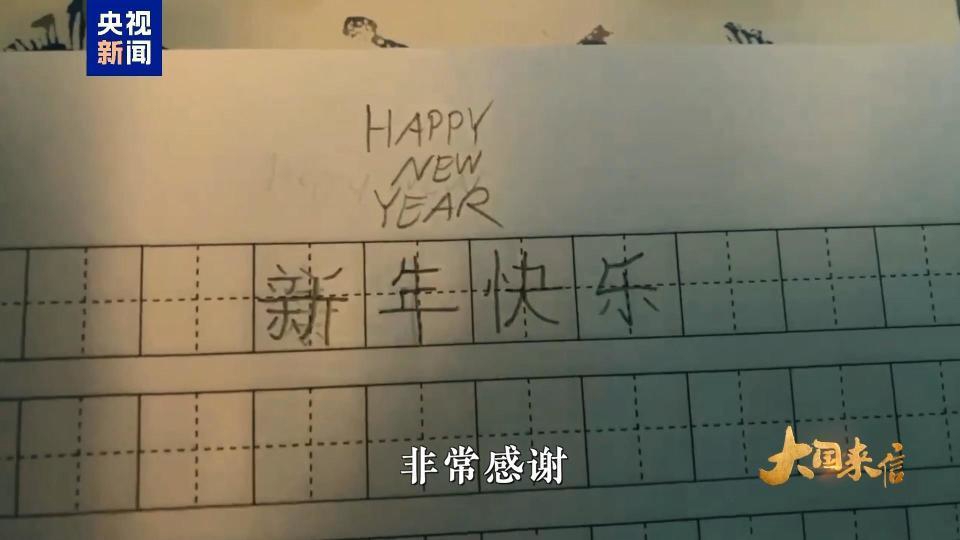 央视
新闻
HAPPY
NEW
YEAR
新年快乐
非常感谢
大国来信